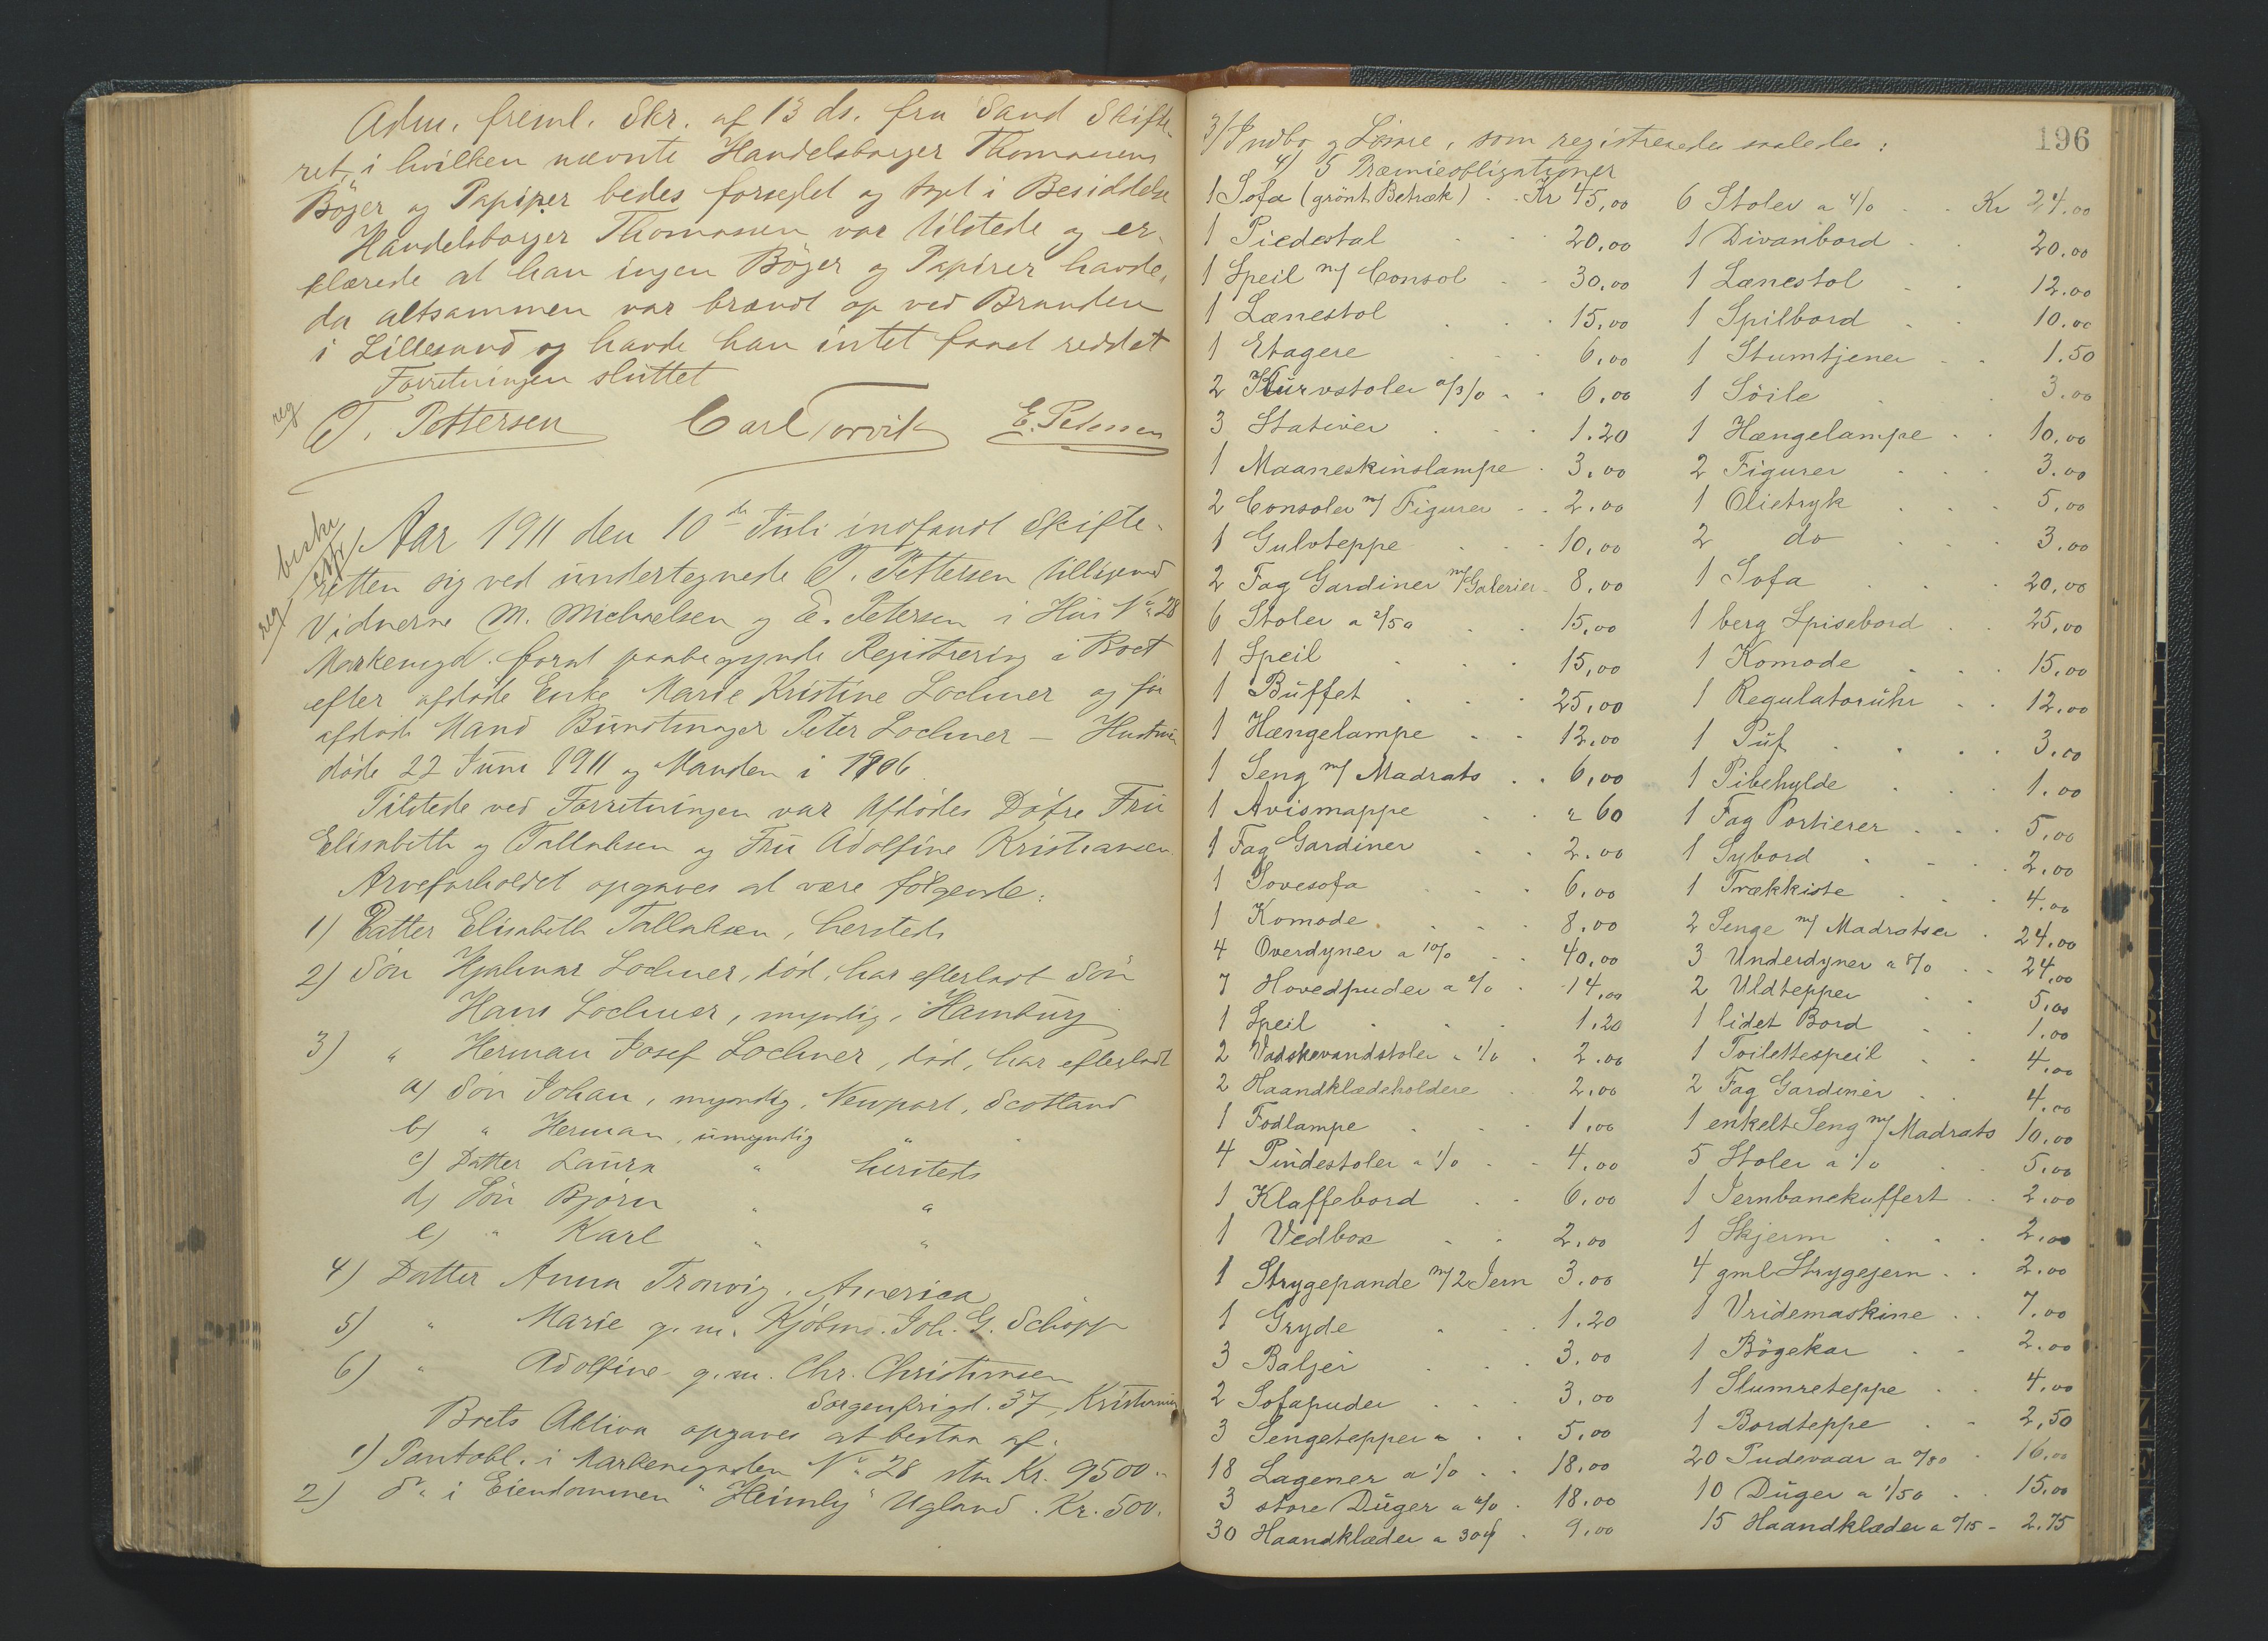 Adm. freml. Skr. af 13 ds. fra Sand Skifte-
ret, i hvilken nævnte Handelsborger Thomassens
Bøger og Papirer bedes forseglet og taget i Besiddelse
Handelsborger Thomassen var tilstede og er-
klærede at han ingen Bøger og Papirer havde,
da altsammen var brændt op ved Branden
i Lillesand og havde han intet faaet reddet
Forretningen sluttet
reg
T. Pettersen Carl Torvik E. Petersen
Aar 1911 den 10de Juli indfandt Skifte-
retten sig ved undertegnede T. Pettersen tilligemed
Vidnerne M. Michaelsen og E. Petersen i Hus No 28
Markensgd. forat paabegynde Registrering i Boet
efter afdøde Enke Marie Kristine Lochner og før
afdøde Mand Buntmager Peter Lochner – Hustruen
døde 22 Juni 1911 og Manden i 1906
Tilstede ved Forretningen var Afdødes Døtre Fru
Elisabeth Tallaksen og Fru Adolfine Kristiansen
Arveforholdet opgaves at være følgende:
1) Datter Elisabeth Tallaksen, hersteds
2) Søn Hjalmar Lochner, død, har efterladt Søn
Hans Lochner, myndig, Hamburg
3) " Herman Josef Lochner, død, har efterladt
a) Søn Johan, myndig, Newport, Scotland
b) " Herman, umyndig "
c) Datter Laura " hersteds
d) Søn Bjørn " "
e) " Karl " "
4) Datter Anna Tronvig, America
5) " Marie g. m. Kjøbm. Joh. G. Schopp
6) " Adolfine g. m. Chr. Christiansen
Sorgenfrigd. 37, Kristiania
Boets Aktiva opgaves at bestaa af:
1) Pantobl. i Markensgaden No 28 stor Kr. 9500 "
2) Do i Eiendommen "Heimly" Ugland. Kr. 500.
196
3) Indbo og Løsøre, som registreredes saaledes:
4) 5 Præmieobligationer
1 Sofa (grønt Betræk) Kr 45,00
1 Piedestal 20,00
1 Speil m/ Consol 30,00
1 Lænestol 15,00
1 Etagere 6,00
2 Kurvstoler a 3/0 6,00
3 Stativer 1.20
1 Maaneskinslampe 3,00
2 Consoler m/ Figurer 2,00
1 Gulvteppe 10,00
2 Fag Gardiner m/ Galerier 8,00
6 Stoler a 2/50 15,00
1 Speil 15,00
1 Buffet 25,00
1 Hængelampe 12,00
1 Seng m/ Madrats 6,00
1 Avismappe " 60
1 Fag Gardiner 2.00
1 Sovesofa 6.00
1 Komode 8.00
4 Overdyner a 10/0 40,00
7 Hovedpuder a 2/0 14,00
1 Speil 1.20
2 Vadskevandstoler a 1/0 2.00
2 Haandklædeholdere 2,00
1 Fodlampe 1,00
4 Pindestoler a 1/0 4.00
1 Klaffebord 6,00
1 Vedbox 2,00
1 Strygepande m/ 2 Jern 3.00
1 Gryde 1.20
3 Baljer 3,00
2 Sofapuder 3,00
3 Sengetepper 5,00
18 Lagener a 1/0 18,00
3 store Duger a 6/0 18,00
30 Haandklæder a 30 ø 9,00
6 Stoler a 4/0 Kr 24.00
1 Divanbord 20.00
1 Lænestol 12.00
1 Spilbord 10.00
1 Stumtjener 1.50
1 Söile 3.00
1 Hængelampe 10.00
2 Figurer 3.00
1 Olietryk 5,00
2 do 3.00
1 Sofa 20,00
1 berg Spisebord 25,00
1 Komode 15,00
1 Regulatoruhr 12,00
1 Puf 3,00
1 Pibehylde 1.00
1 Fag Portierer 5,00
1 Sybord 2,00
1 Trækkiste 4.00
2 Senge m/ Madratser 24,00
3 Underdyner a 8/0 24,00
2 Uldtepper 5,00
1 lidet Bord 1.00
1 Toilettespeil 4,00
2 Fag Gardiner 4.00
1 enkelt Seng m/ Madrats 10,00
5 Stoler a 1/0 5,00
1 Jernbanekuffert 2.00
1 Skjerm 2,00
4 gml Strygejern 2.00
1 Vridemaskine 7.00
1 Bøgekar 2.00
1 Slumreteppe 4.00
1 Bordteppe 2,50
20 Pudevaar a 0/80 16,00
10 Duger a 1/50 15,00
15 Haandklæder a 0/15 2.75